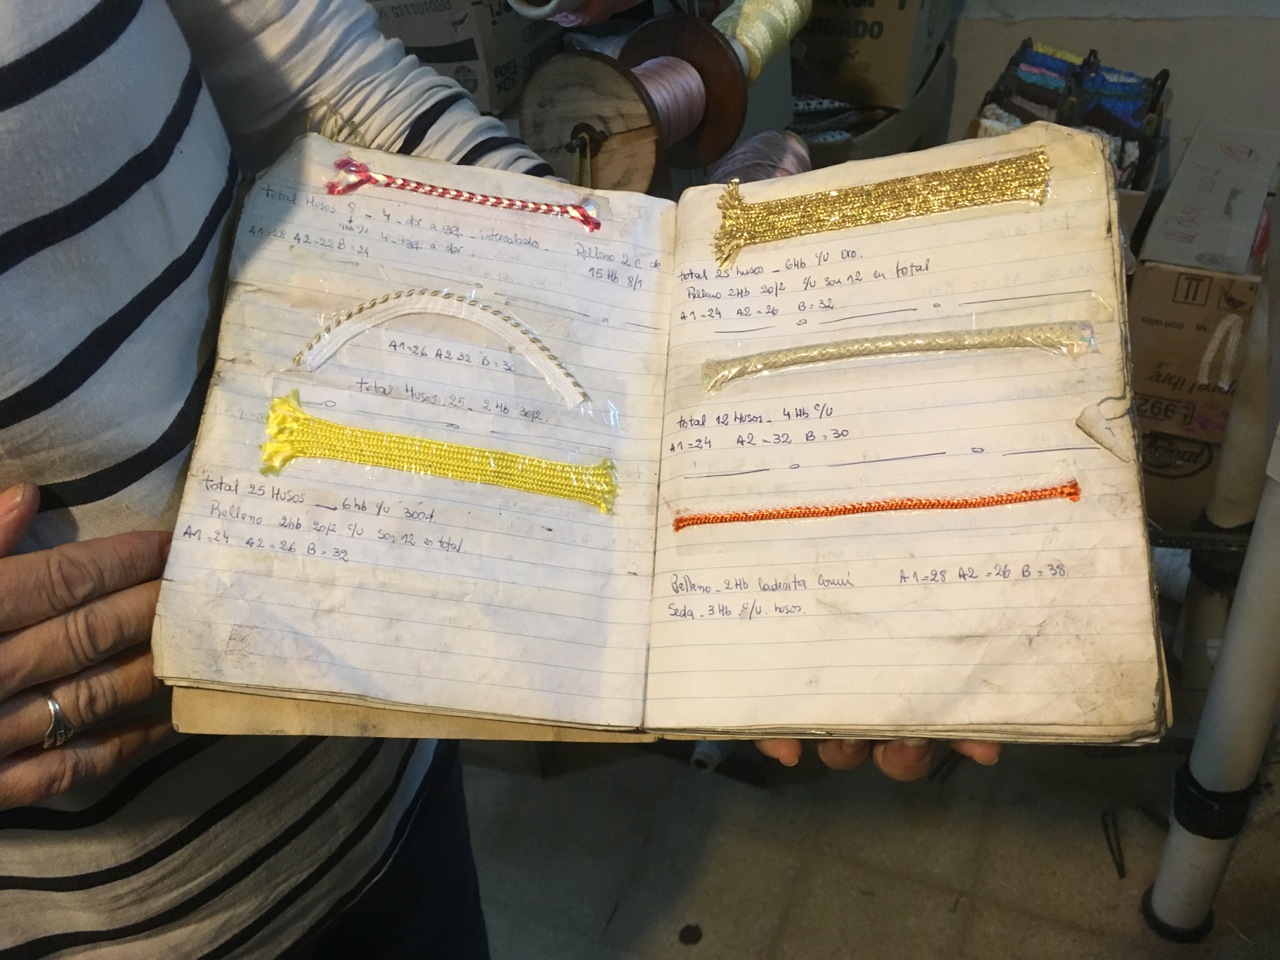 Total Husos 8 - 4 - der a izq - intercalados -
4 - izq a der
A1=28 A2=22 B=24
Relleno 2 c de
15 Hb 8/1
A1=26 A2 32 B=30
Total Husos - 25 - 2 Hb 30/2.
Total 25 Husos - 6 hb c/u 300d.
Relleno 2hb 20/2 c/u son 12 en total.
A1=24 A2=26 B=32
Total 25 husos - 6 hb c/u Oro.
Relleno 2Hb 20/2 c/u son 12 en total
A1=24 A2=26 B=32
Total 12 Husos - 4 Hb c/u
A1=24 A2=32 B=30
Relleno - 2 Hb Cadenita Comú A1=28 A2=26 B=38
Seda - 3 Hb c/u. husos.